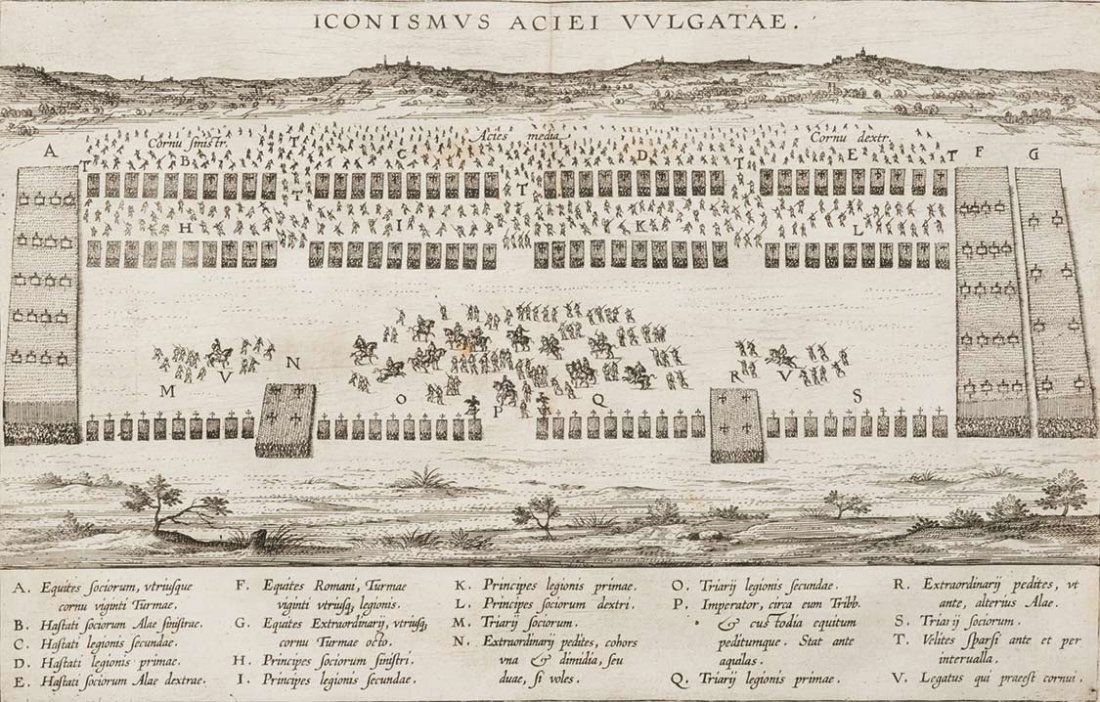 ICONISMVS ACIEI VVLGATAE.
A
Cornu sinistr.
Acies media
Cornu dextr.
F
G
T
T
T
B
C
D
T
E
T
T
T
H
I
K
L
M
V
N
O
P
Q
R
V
S
A. Equites sociorum, vtriusque
cornu viginti Turmae.
B. Hastati sociorum Alae sinistrae.
C. Hastati legionis secundae.
D. Hastati legionis primae.
E. Hastati sociorum Alae dextrae.
F. Equites Romani, Turmae
viginti vtriusq, legionis.
G. Equites Extraordinarij, vtriusq,
cornu Turmae octo.
H. Principes sociorum sinistri.
I. Principes legionis secundae.
K. Principes legionis primae.
L. Principes sociorum dextri.
M. Triarij sociorum.
N. Extraordinarij pedites, cohors
vna & dimidia, seu
duae, si voles.
O. Triarij legionis secundae.
P. Imperator, circa eum Tribb.
& custodia equitum
peditumque. Stat ante
aquilas.
Q. Triarij legionis primae.
R. Extraordinarij pedites, vt
ante, alterius Alae.
S. Triarij sociorum.
T. Velites sparsi ante et per
interualla.
V. Legatus qui praeest cornui.